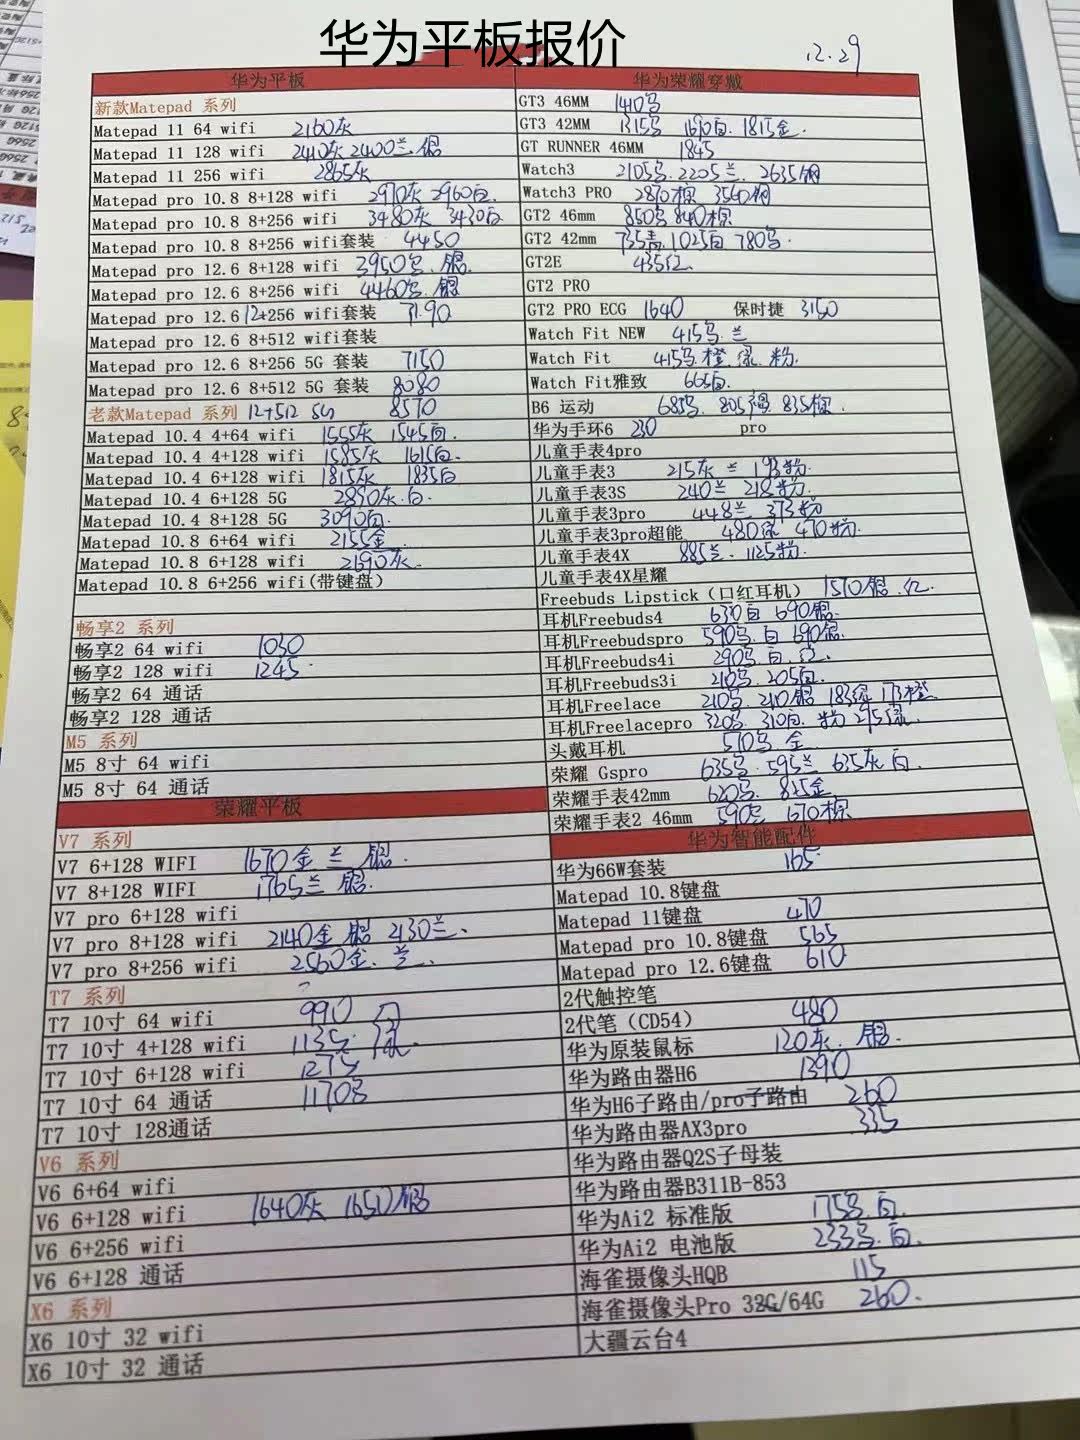 华为平板报价
12.29
华为平板
新款Matepad 系列
Matepad 11 64 wifi 2160灰
Matepad 11 128 wifi 2410灰 2400兰 银
Matepad 11 256 wifi 2865灰
Matepad pro 10.8 8+128 wifi 2970灰 2960白
Matepad pro 10.8 8+256 wifi 3480灰 3430白
Matepad pro 10.8 8+256 wifi套装 4450
Matepad pro 12.6 8+128 wifi 3950 银
Matepad pro 12.6 8+256 wifi 4460 银
Matepad pro 12.6 12+256 wifi套装
Matepad pro 12.6 8+512 wifi套装
Matepad pro 12.6 8+256 5G 套装 7150
Matepad pro 12.6 8+512 5G 套装 8080
老款Matepad 系列 12+512 5G 8570
Matepad 10.4 4+64 wifi 1555灰 1545白.
Matepad 10.4 4+128 wifi 1585灰 1615白.
Matepad 10.4 6+128 wifi 1815灰 1835白
Matepad 10.4 6+128 5G 2890灰.白.
Matepad 10.4 8+128 5G 3090白.
Matepad 10.8 6+64 wifi 2155金
Matepad 10.8 6+128 wifi 2690灰.
Matepad 10.8 6+256 wifi(带键盘)
畅享2 系列
畅享2 64 wifi 1030
畅享2 128 wifi 1245
畅享2 64 通话
畅享2 128 通话
M5 系列
M5 8寸 64 wifi
M5 8寸 64 通话
荣耀平板
V7 系列
V7 6+128 WIFI 1670金 兰 银.
V7 8+128 WIFI 1765兰 银.
V7 pro 6+128 wifi
V7 pro 8+128 wifi 2140金 银 2130兰、
V7 pro 8+256 wifi 2560金、兰、
T7 系列
T7 10寸 64 wifi 990
T7 10寸 4+128 wifi 1135
T7 10寸 6+128 wifi 1275
T7 10寸 64 通话 1170
T7 10寸 128通话
V6 系列
V6 6+64 wifi
V6 6+128 wifi 1640灰 1650银
V6 6+256 wifi
V6 6+128 通话
X6 系列
X6 10寸 32 wifi
X6 10寸 32 通话
华为荣耀穿戴
GT3 46MM 1410
GT3 42MM 1315 1690白. 1815金.
GT RUNNER 46MM 1845
Watch3 2105 2205兰. 2635钢
Watch3 PRO 2870棕 3560钢
GT2 46mm 850 840棕
GT2 42mm 735青 1025白 780
GT2E 435红
GT2 PRO
GT2 PRO ECG 1640 保时捷 3150
Watch Fit NEW 415 兰
Watch Fit 415 橙.绿.粉.
Watch Fit雅致 665白.
B6 运动 685 805 835棕.
华为手环6 230 pro
儿童手表4pro
儿童手表3 215灰 兰 193粉.
儿童手表3S 240兰 218粉.
儿童手表3pro 448兰. 373粉
儿童手表3pro超能 480绿 470粉.
儿童手表4X 885兰. 1125粉.
儿童手表4X星耀
Freebuds Lipstick（口红耳机） 1570银.红.
耳机Freebuds4 630白 690银.
耳机Freebudspro 590.白 690银.
耳机Freebuds4i 290.白.红.
耳机Freebuds3i 210. 205白.
耳机Freelace 210. 210银 183绿 173橙
耳机Freelacepro 320. 310白. 粉 295绿.
头戴耳机 570 金
荣耀 Gspro 635. 595兰 635灰 白.
荣耀手表42mm 620. 825金.
荣耀手表2 46mm 590 670棕
华为智能配件
华为66W套装 165
Matepad 10.8键盘
Matepad 11键盘 470
Matepad pro 10.8键盘 565
Matepad pro 12.6键盘 610
2代触控笔
2代笔（CD54） 480
华为原装鼠标 120灰. 银.
华为路由器H6 1390
华为H6子路由/pro子路由 260
华为路由器AX3pro 335
华为路由器Q2S子母装
华为路由器B311B-853
华为Ai2 标准版 175.白.
华为Ai2 电池版 233.白.
海雀摄像头HQB 115
海雀摄像头Pro 32G/64G 260.
大疆云台4